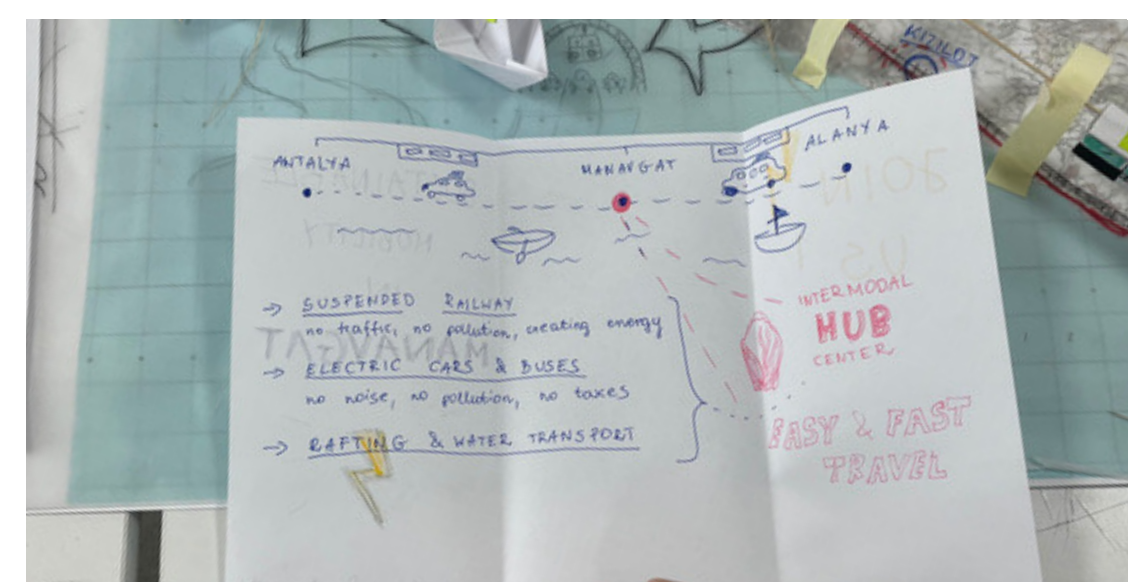 KIZILOT
ANTALYA
MANAVGAT
ALANYA
→ SUSPENDED RAILWAY
no traffic, no pollution, creating energy
→ ELECTRIC CARS & BUSES
no noise, no pollution, no taxes
→ RAFTING & WATER TRANSPORT
INTERMODAL
HUB
CENTER
EASY & FAST
TRAVEL
JOIN
US
MOBILITY
IN
MANAVGAT